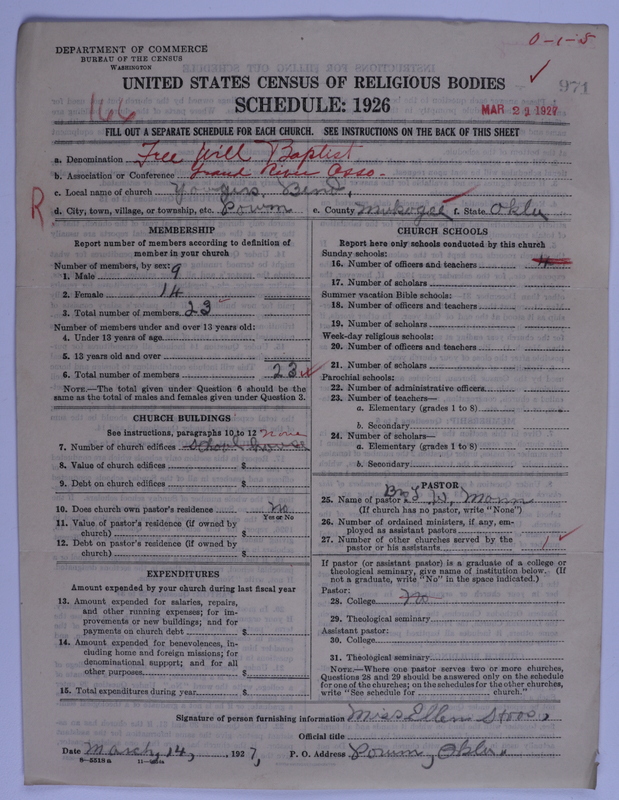 0-1-5
DEPARTMENT OF COMMERCE
BUREAU OF THE CENSUS
WASHINGTON
UNITED STATES CENSUS OF RELIGIOUS BODIES
971
166
SCHEDULE: 1926
MAR 22 1927
FILL OUT A SEPARATE SCHEDULE FOR EACH CHURCH. SEE INSTRUCTIONS ON THE BACK OF THIS SHEET
a. Denomination Free Will Baptist
b. Association or Conference Grand River Asso-
c. Local name of church Youngers Bend,
R
d. City, town, village, or township, etc. Porum e. County Muskogee f. State Okla
MEMBERSHIP
Report number of members according to definition of
member in your church
Number of members, by sex:
1. Male 9
2. Female 14
3. Total number of members 23
Number of members under and over 13 years old:
4. Under 13 years of age
5. 13 years old and over
6. Total number of members 23
NOTE.—The total given under Question 6 should be the
same as the total of males and females given under Question 3.
CHURCH BUILDINGS
See instructions, paragraphs 10 to 12 none
7. Number of church edifices school house
8. Value of church edifices $
9. Debt on church edifices $
10. Does church own pastor's residence No
Yes or No
11. Value of pastor's residence (if owned by
church) $
12. Debt on pastor's residence (if owned by
church) $
EXPENDITURES
Amount expended by your church during last fiscal year
13. Amount expended for salaries, repairs,
and other running expenses; for im-
provements or new buildings; and for
payments on church debt $
14. Amount expended for benevolences, in-
cluding home and foreign missions; for
denominational support; and for all
other purposes $
15. Total expenditures during year $
CHURCH SCHOOLS
Report here only schools conducted by this church
Sunday schools:
16. Number of officers and teachers 4
17. Number of scholars
Summer vacation Bible schools:
18. Number of officers and teachers
19. Number of scholars
Week-day religious schools:
20. Number of officers and teachers
21. Number of scholars
Parochial schools:
22. Number of administrative officers
23. Number of teachers—
a. Elementary (grades 1 to 8)
b. Secondary
24. Number of scholars—
a. Elementary (grades 1 to 8)
b. Secondary
PASTOR
25. Name of pastor W. Mann
(If church has no pastor, write "None")
26. Number of ordained ministers, if any, em-
ployed as assistant pastors
27. Number of other churches served by the
pastor or his assistants 1
If pastor (or assistant pastor) is a graduate of a college or
theological seminary, give name of institution below. (If
not a graduate, write "No" in the space indicated.)
Pastor:
28. College No
29. Theological seminary
Assistant pastor:
30. College
31. Theological seminary
NOTE.—Where one pastor serves two or more churches,
Questions 28 and 29 should be answered only on the schedule
for one of the churches; on the schedules for the other churches,
write "See schedule for church."
Signature of person furnishing information Miss Ellen Stoos,
Official title
Date March, 14, 1927, P. O. Address Porum, Okla.
8—5518a